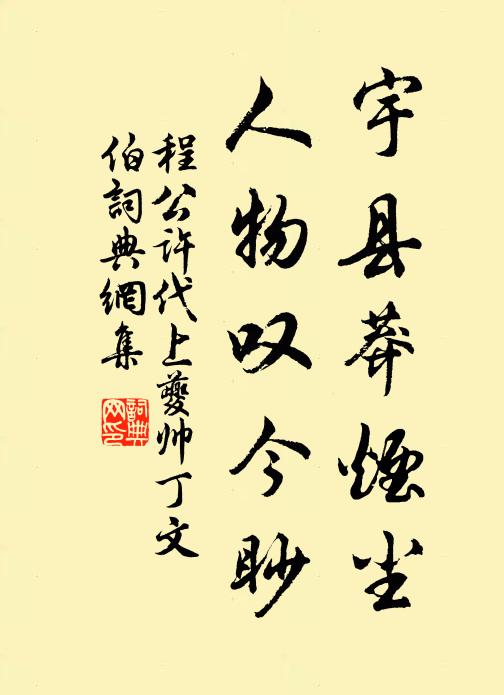 宇县莽煙尘
人物叹今眇
程公许代上夔帅丁文
伯詞典網集
詞典
网印